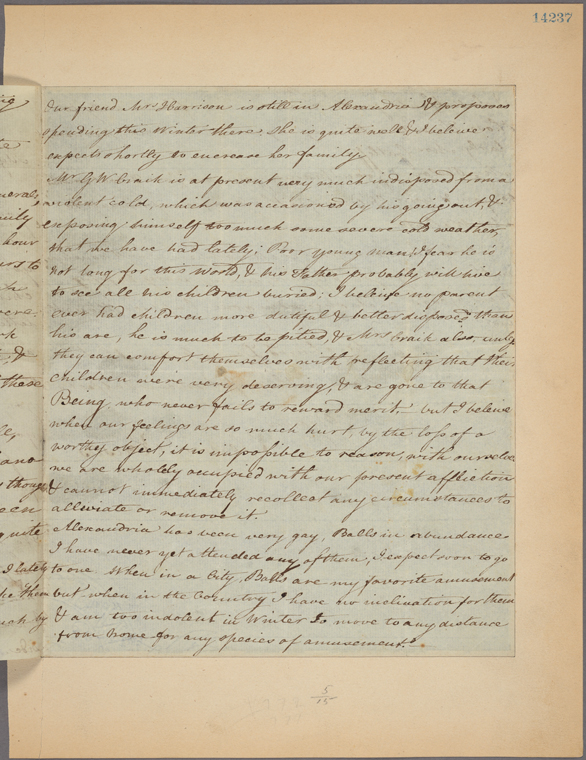 14237
Our friend Mrs Harrison is still in Alexandria & proposes
spending this Winter there. She is quite well & I beleive
expects shortly to encrease her family.
Mr. G W Craik is at present very much indisposed from a
violent cold, which was occasioned by his going out, &
exposing himself too much some severe cold weather,
that we have had lately; Poor young man! I fear he is
not long for this World, & his Father probably will live
to see all his children buried; I beleive no parent
ever had children more dutiful & better disposed than
his are, he is much to be pitied, & Mrs Craik also, unless
they can comfort themselves with reflecting that their
children were very deserving, & are gone to that
Being who never fails to reward merit. but I beleive
when our feelings are so much hurt, by the loss of a
worthy object, it is impossible to reason, with ourselves
we are wholely occupied with our present affliction
& cannot immediately recollect any circumstances to
alleviate or remove it.
Alexandria has been very gay, Balls in abundance
I have never yet attended any of them, I expect soon to go
to one. When in a City, Balls are my favorite amusement
but when in the Country I have no inclination for them
& am too indolent in Winter to move to any distance
from home for any species of amusement.
hour
to
&
these
though
quite
I lately
them
by
5
15